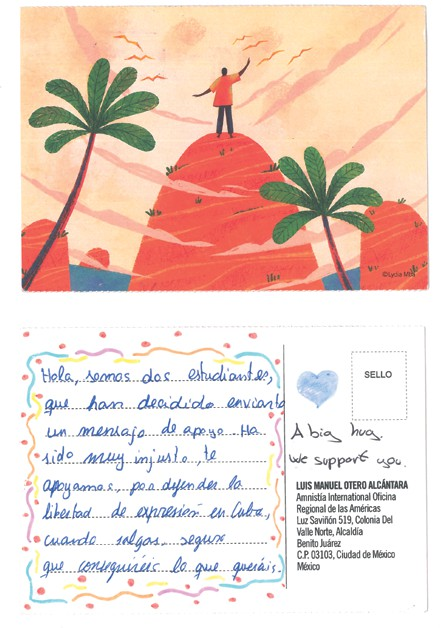 ©Lydia Mba
Hola, somos dos estudiantes,
que han decidido enviarte
un mensaje de apoyo. Ha
sido muy injusto, te
apoyamos, por defender la
libertad de expresión en Cuba,
cuando salgas, seguro
que conseguiréis lo que queráis.
SELLO
A big hug.
We support you.
LUIS MANUEL OTERO ALCÁNTARA
Amnistía International Oficina
Regional de las Américas
Luz Saviñón 519, Colonia Del
Valle Norte, Alcaldía
Benito Juárez
C.P. 03103, Ciudad de México
México